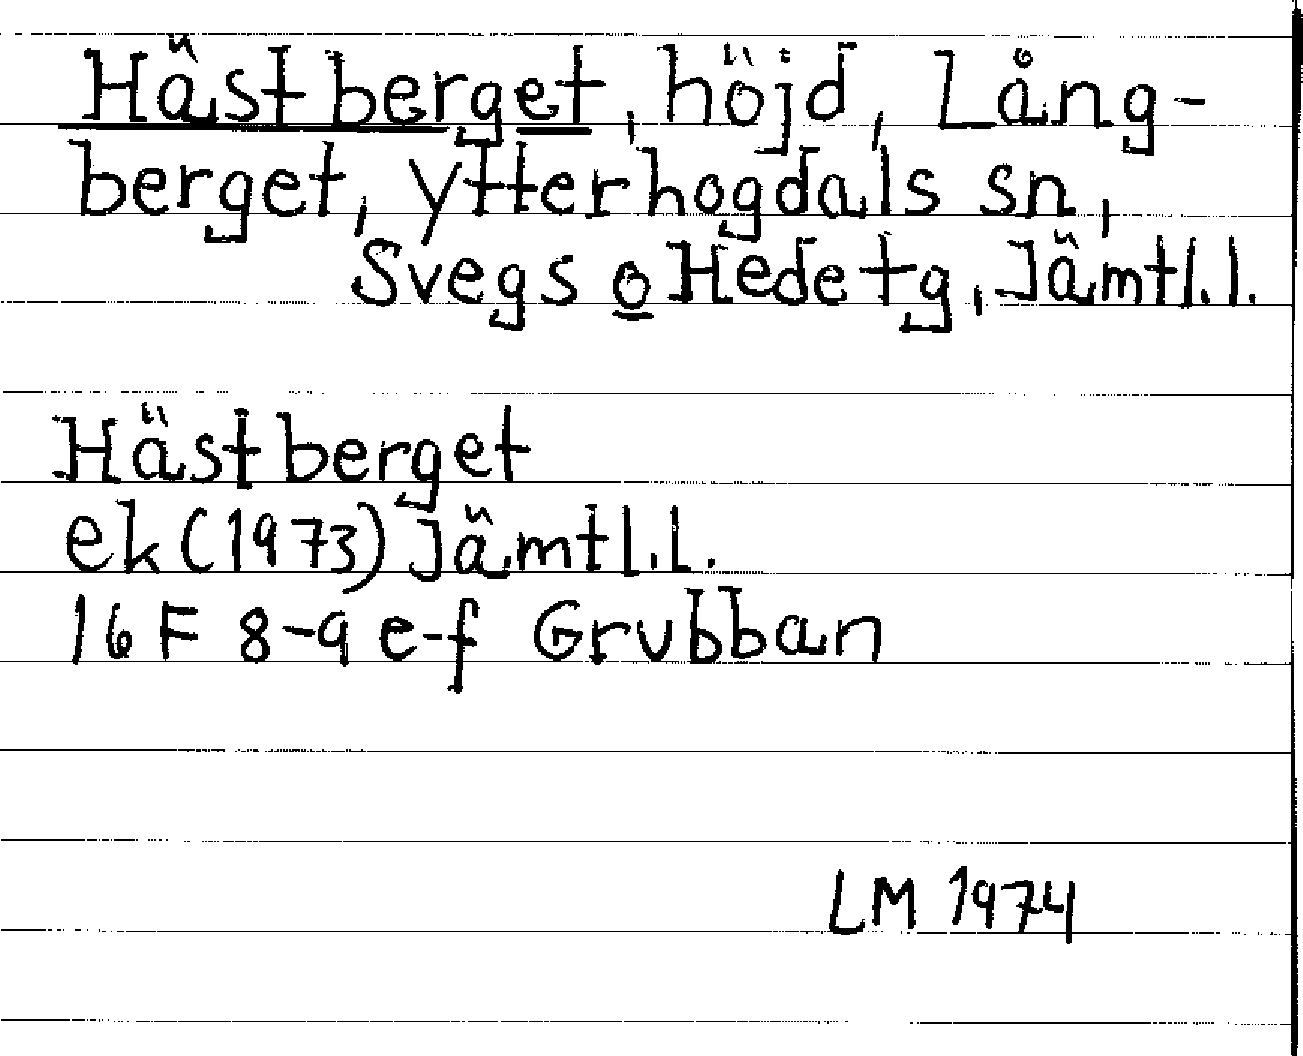 Hästberget, höjd, Lång-
berget, Ytterhogdals sn,
Svegs o Hede tg, Jämtl.l.
Hästberget
ek(1973) Jämtl.l.
16 F 8-9 e-f Grubban
LM 1974